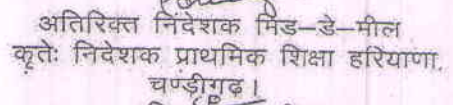 अतिरिक्त निदेशक मिड–डे–मील
कृतेः निदेशक प्राथमिक शिक्षा हरियाणा,
चण्डीगढ़।